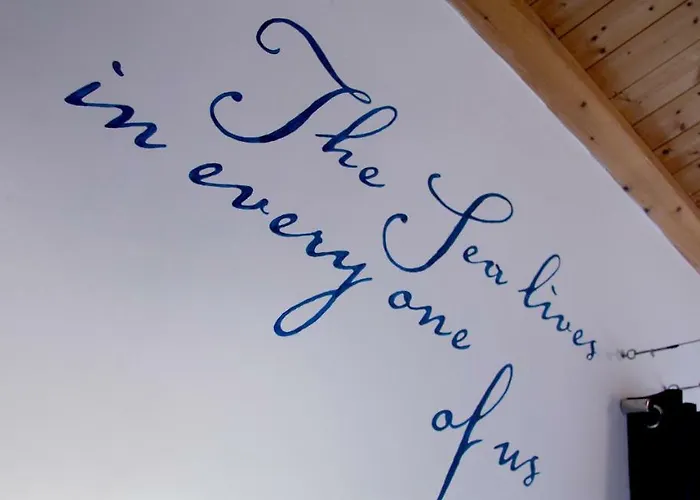 The Sea lives
in every one
of us